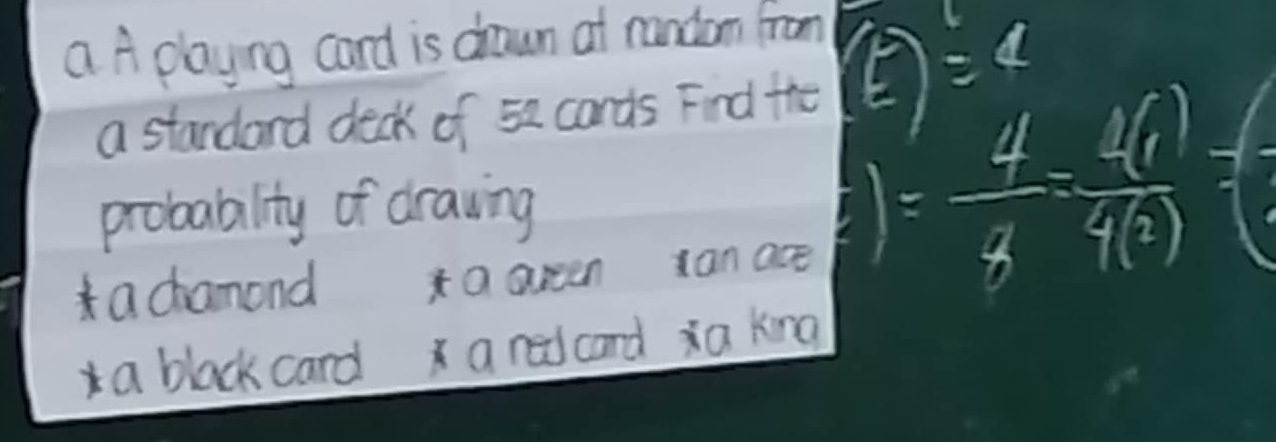 a. A playing card is drawn at random from
a standard deck of 52 cards Find the
probability of drawing
* a diamond * a queen * an ace
* a black card * a red card * a king
(E) = 4
) = 4/8 = 4(1)/4(2) =